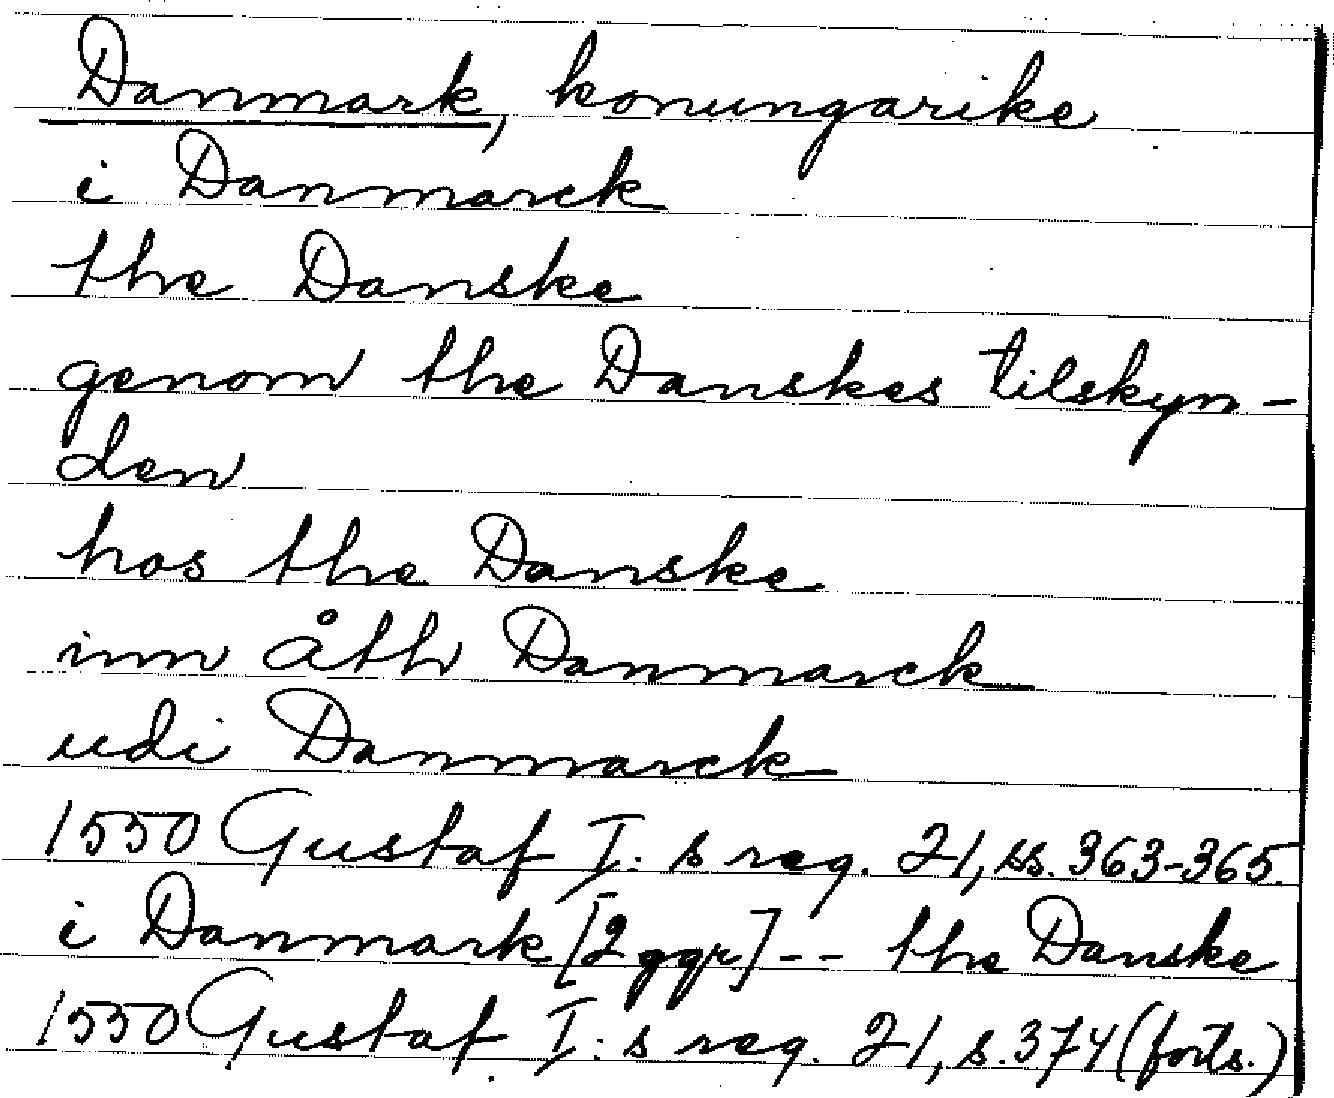 Danmark, konungarike
i Danmarck
the Danske
genom the Danskes tilskyn-
den
hos the Danske
inn åth Danmarck
udi Danmarck
1550 Gustaf I:s reg. 21, ss. 363-365.
i Danmark [2 ggr] -- the Danske
1550 Gustaf I:s reg. 21, s. 374 (forts.)